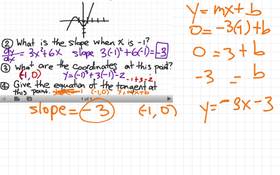 ② What is the slope when x is -1?
dy/dx = 3x²+6x slope 3(-1)²+6(-1) = -3
③ What are the coordinates at this point?
(-1,0) y=(-0)³+3(-1)²-2 -1+3-2
④ Give the equation of the tangent at
this point. slope = -1 (-1,0) y=mx+b
slope = -3 (-1,0)
y=mx+b
0=-3(-1)+b
0=3+b
-3=b
y=-3x-3